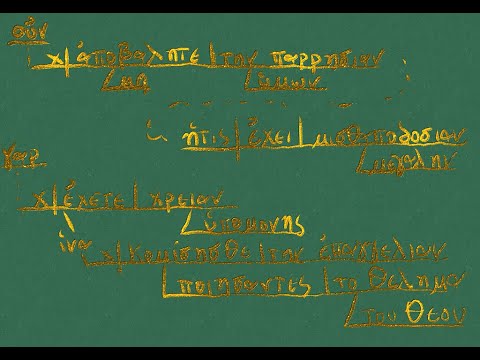 οὐν
x ἀποβαλητε την παρρησιαν
μη ὑμων
ἡτις ἐχει μισθαποδοσιαν
μεγαλην
γαρ
x ἐχετε χρειαν
ὑπομονης
ἱνα x κομισησθε την ἐπαγγελιαν
ποιησαντες το θελημα
του θεου